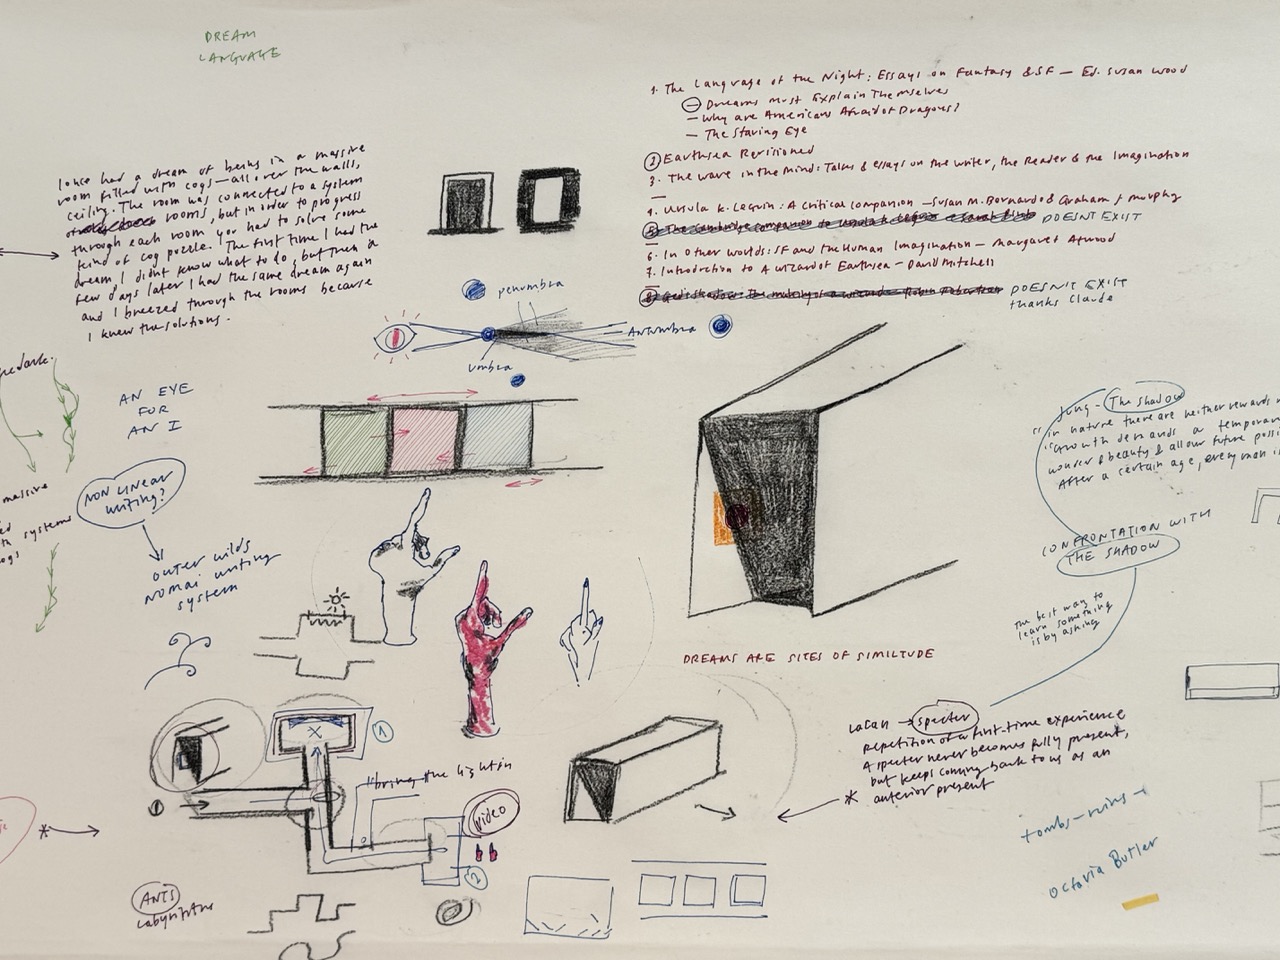 DREAM
LANGUAGE
I once had a dream of being in a massive
room filled with cogs — all over the walls,
ceiling. The room was connected to a system
of rooms, but in order to progress
through each room you had to solve some
kind of cog puzzle. The first time I had the
dream, I didnt know what to do, but then a
few days later I had the same dream again
and I breezed through the rooms because
I knew the solutions.
1. The Language of the Night: Essays on Fantasy & SF — Ed. Susan Wood
— Dreams must Explain Themselves
— Why are Americans Afraid of Dragons?
— The Staring Eye
2 Earthsea Revisioned
3. The wave in the Mind: Talks & essays on the writer, the Reader & the Imagination
4. Ursula K. Leguin: A Critical companion — Susan M. Bernardo & Graham J. Murphy
5. The Cambridge companion to Ursula K. Leguin DOESNT EXIST
6. In Other Worlds: SF and the Human Imagination — Margaret Atwood
7. Introduction to A Wizard of Earthsea — David Mitchell
8. DOESN'T EXIST
thanks Claude
penumbra
Antumbra
umbra
AN EYE
FOR
AN I
NON LINEAR
writing?
outer wilds
nomai writing
system
massive
systems
Jung - The Shadow
"in nature there are neither rewards
"Growth demands a temporary
wonder & beauty & all our future
After a certain age, every man is
CONFRONTATION WITH
THE SHADOW
the best way to
learn something
is by asking
DREAMS ARE SITES OF SIMILTUDE
Lacan → specter
repetition of a first-time experience
A specter never becomes fully present,
but keeps coming back to us as an
* anterior present
tombs - ruins -
Octavia Butler
X
1
"bring the light in
video
2
*
ANTS
Labyrinths